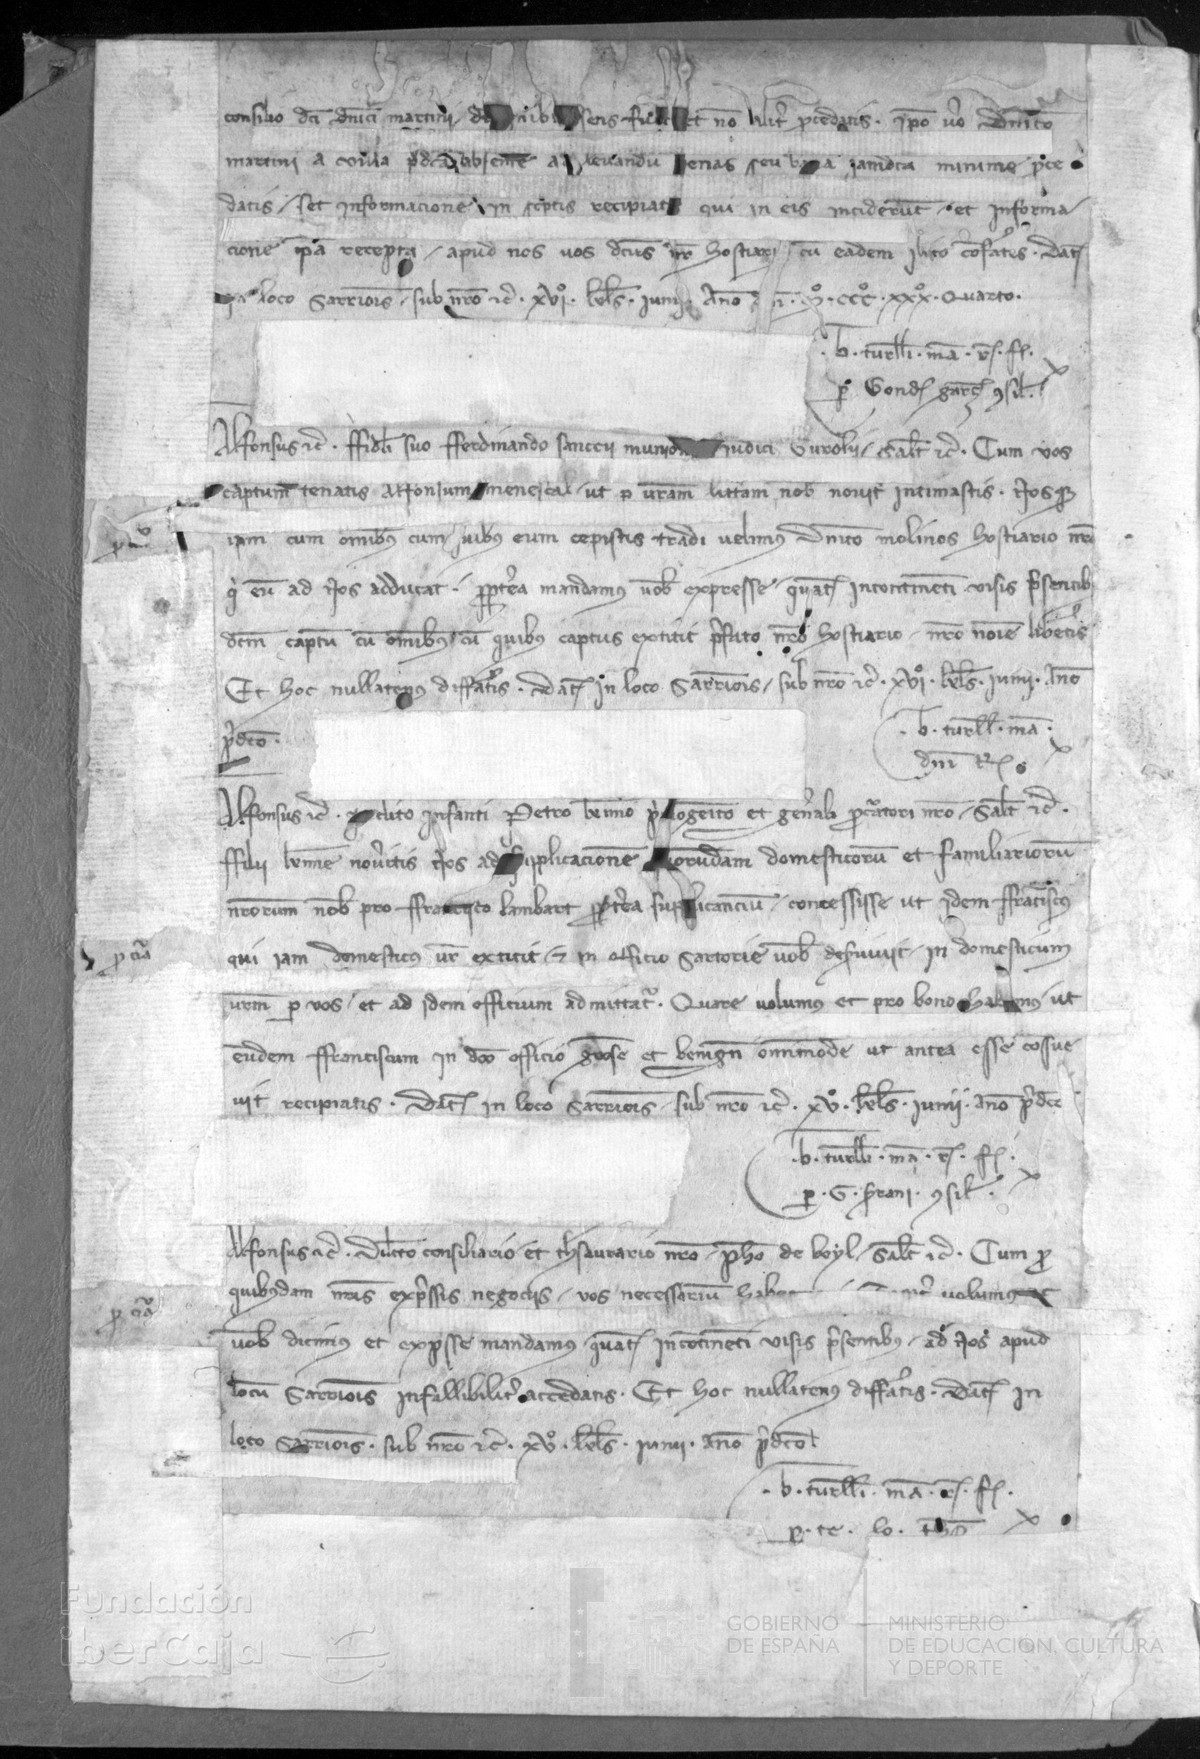 consilio dci dnici martini / de sens fu et no alit pcedatis . Ipo vo dnico
martini a villa pdca absente a levandu penas seu bana iamdca minime pce
datis / set informacione in sciptis recipiatis qui in eis inciderut / et informa
cione ipa recepta / apud nos vos dcus nr hostiari cu eadem ilico cofatis . Dat
loco Sarrionis / sub nro ic . xvi . kls . iunij Ano dni . m . ccc . xxx . Quarto .
. b . turelli . ma . r . f .
p Gond garc 9sil .
Alfonsus ic . ffideli suo fferdinando sancii munion judici Turolii / Salt ic . Cum vos
captum teneatis Alfonsum menescal / ut p vram litteram nob novit intimastis . Nos q3
ipm cum omibus cum quibus eum cepistis tradi velimus Dnico molinos hostiario nro
q eu ad Nos adducat . ppterea mandamus vob expresse / quat incontineti visis psentib
dcm captu cu omibus cu quibus captus extitit pfato nro hostiario / nro noie liberetis
Et hoc nullatenus diffatis . Dat in loco Sarrionis / sub nro ic . xvi . kls . iunij . Ano
pdco .
. b . turell . ma .
dni R
Alfonsus ic . Inclito Infanti Petro kmo pmogeito et genali pcatori nro / Salt ic .
ffili kme noveritis Nos ad supplicacione quorudam domesticoru et familiarioru
nrorum nob pro ffrancisco lambart ppterea suplicanciu / concessisse ut idem ffranciscus
qui iam domesticus vr extitit / et in officio Sartorie vob deservivit / in domesticum
vrm p vos / et ad idem officium admittat . Quare volumus et pro bono habemus ut
eudem ffranciscum in dco officio gose et benign omimode ut antea esse cosue
vit recipiatis . Dat in loco Sarrionis / sub nro ic . xv . kls . iunij . Ano pdco
. b . turelli . ma . r . f .
p . G . serani . 9sil .
Alfonsus ic . Dilecto consiliario et thesaurario nro / pho de boyl / Salt ic . Cum p
quibusdam nris expssis negociis / vos necessarium habe volumus
vob dicimus et expsse mandamus / quat incotineti visis psentibus / ad Nos apud
locu Sarrionis infallibilit accedatis . Et hoc nullatenus diffatis . Dat in
loco Sarrionis . sub nro ic . xv . kls . iunij . Ano pdco
. b . turelli . ma . r . f .
p . ce . lo .
p cia
p cia
Fundación
iberCaja
GOBIERNO
DE ESPAÑA
MINISTERIO
DE EDUCACIÓN, CULTURA
Y DEPORTE